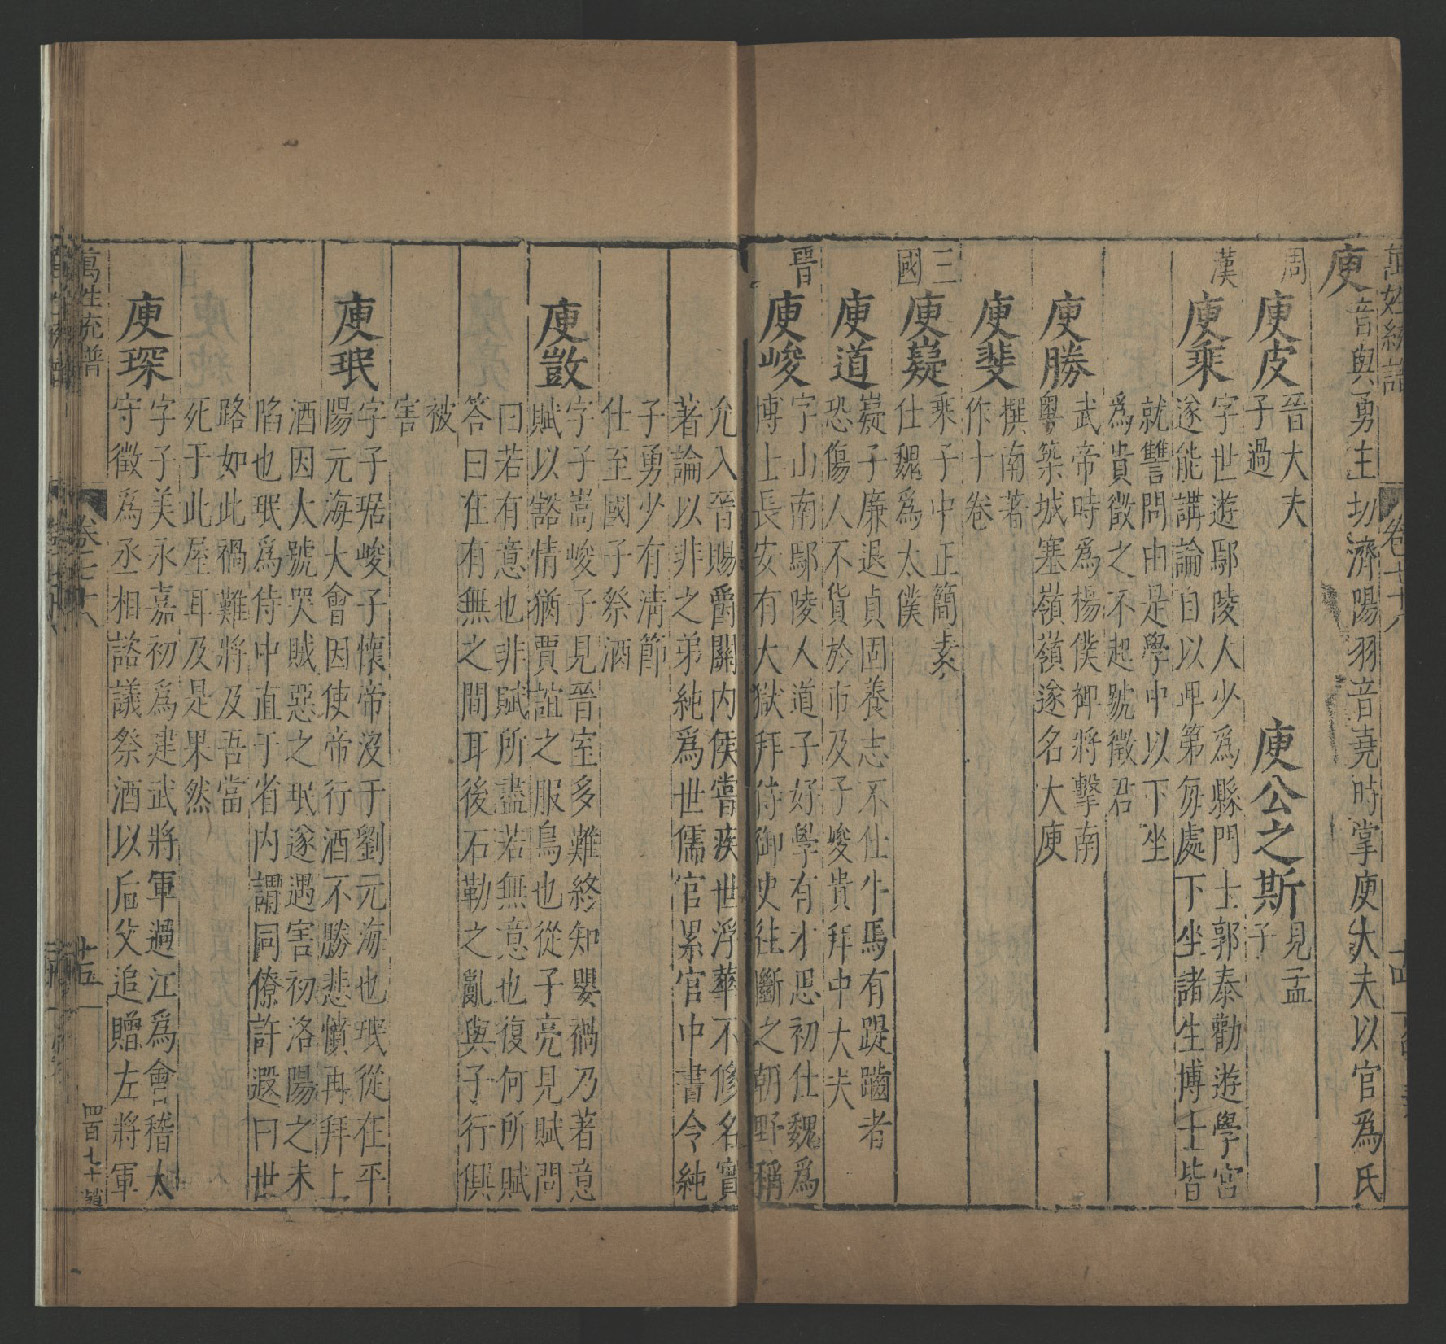 萬姓統譜 卷七十八 十四
庾 音與勇主切濟陽羽音堯時掌庾大夫以官為氏
周 庾皮 晉大夫子過
庾公之斯 見孟子
漢 庾乘 字世遊鄢陵人少為縣門士郭泰勸遊學宮
遂能講論自以卑第每處下坐諸生博士皆
就讐問由是學中以下坐
為貴徵之不起號徵君
庾勝 武帝時為楊僕裨將擊南
粵築城塞嶺嶺遂名大庾
庾斐 撰南著
作十卷
三國 庾嶷 乘子中正簡素
仕魏為太僕
庾道 嶷子廉退貞固養志不仕牛馬有踶齧者
恐傷人不貨於市及子峻貴拜中大夫
晉 庾峻 字山南鄢陵人道子好學有才思初仕魏為
博士長安有大獄拜侍御史往斷之朝野稱
允入晉賜爵關內侯嘗疾世浮華不修名實
著論以非之弟純為世儒官累官中書令純
子勇少有清節
仕至國子祭酒
庾敳 字子嵩峻子見晉室多難終知嬰禍乃著意
賦以豁情猶賈誼之服鳥也從子亮見賦問
曰若有意也非賦所盡若無意也復何所賦
答曰在有無之間耳後石勒之亂與子行俱
被
害
庾珉 字子琚峻子懷帝沒于劉元海也珉從在平
陽元海大會因使帝行酒不勝悲憤再拜上
酒因大號哭賊惡之珉遂遇害初洛陽之未
陷也珉為侍中直于省內謂同僚許遐曰世
路如此禍難將及吾當
死于此屋耳及是果然
庾琛 字子美永嘉初為建武將軍過江為會稽太
守徵為丞相諮議祭酒以后父追贈左將軍
萬姓統譜 卷七十八 十五 四百七十